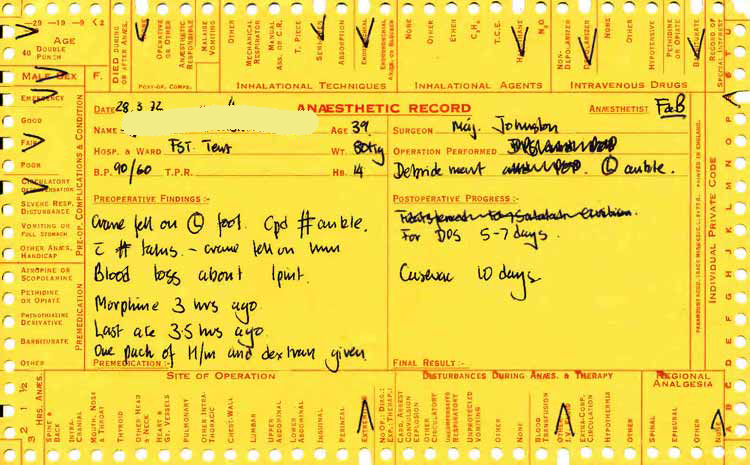 29 - 19 - 9 < 2
AGE
40 DOUBLE PUNCH
MALE SEX F.
DIED DURING OR AFTER ANÆS.
OPERATIVE OR OTHER
ANÆSTHETIC RESPONSIBLE
MALAISE VOMITING
OTHER
POST-OP. COMPS.
MECHANICAL RESPIRATOR
MANUAL ASS. OR C.R.
T. PIECE
ABSORPTION
INHALATIONAL TECHNIQUES
NONE
OTHER
ETHER
T.C.E.
N₂O
INHALATIONAL AGENTS
NON-DEPOLARIZER
DEPOLARIZER
NONE
OTHER
HYPOTENSIVE
PETHIDINE OR OPIATE
BARBITURATE
INTRAVENOUS DRUGS
RECORD OF SPECIAL INTEREST
EMERGENCY
GOOD
FAIR
POOR
CIRCULATORY DECOMPENSATION
SEVERE RESP. DISTURBANCE
VOMITING OR FULL STOMACH
OTHER ANÆS. HANDICAP
PRE-OP. COMPLICATIONS & CONDITION
ATROPINE OR SCOPOLAMINE
PETHIDINE OR OPIATE
PHENOTHIAZINE DERIVATIVE
BARBITURATE
OTHER
PREMEDICATION
DATE 28.3.72 ANÆSTHETIC RECORD ANÆSTHETIST F&B
NAME AGE 39 SURGEON Maj. Johnston
HOSP. & WARD FST. Tent WT. 80kg OPERATION PERFORMED
B.P. 90/60 T.P.R. HB. 14 Debridement (L) ankle.
PREOPERATIVE FINDINGS :-
Crane fell on (L) foot. Cpd # ankle.
c̄ # talus. - crane fell on him
Blood loss about 1 pint.
Morphine 3 hrs ago.
Last ate 3.5 hrs ago.
One pack of H/m and dextran given
PREMEDICATION :-
POSTOPERATIVE PROGRESS :-
For DPS 5-7 days.
Casevac 10 days
FINAL RESULT :-
PRINTED IN ENGLAND.
INDIVIDUAL PRIVATE CODE
A B C D E F G H I J K L M N O P
3 2 1 ½
HRS. ANÆS.
SITE OF OPERATION
SPINE & BACK
INTRA-CRANIAL
MOUTH, NOSE & THROAT
THYROID
OTHER HEAD & NECK
HEART & GT. VESSELS
PULMONARY
OTHER INTRA-THORACIC
CHEST-WALL
LUMBAR
UPPER ABDOMINAL
LOWER ABDOMINAL
INGUINAL
PERINEAL
EXTREMITIES
DISTURBANCES DURING ANÆS. & THERAPY
NO. OF: DISB.: EXC.: THERAP.
CARD. ARREST CONVULSION EXPLOSION
OTHER CIRCULATORY
RESPIRATORY
UNPROVOKED VOMITING
OTHER
NONE
BLOOD TRANSFUSION
EXTRA-CORP. CIRCULATION
HYPOTHERMIA
OTHER
REGIONAL ANALGESIA
SPINAL
EPIDURAL
OTHER
NONE